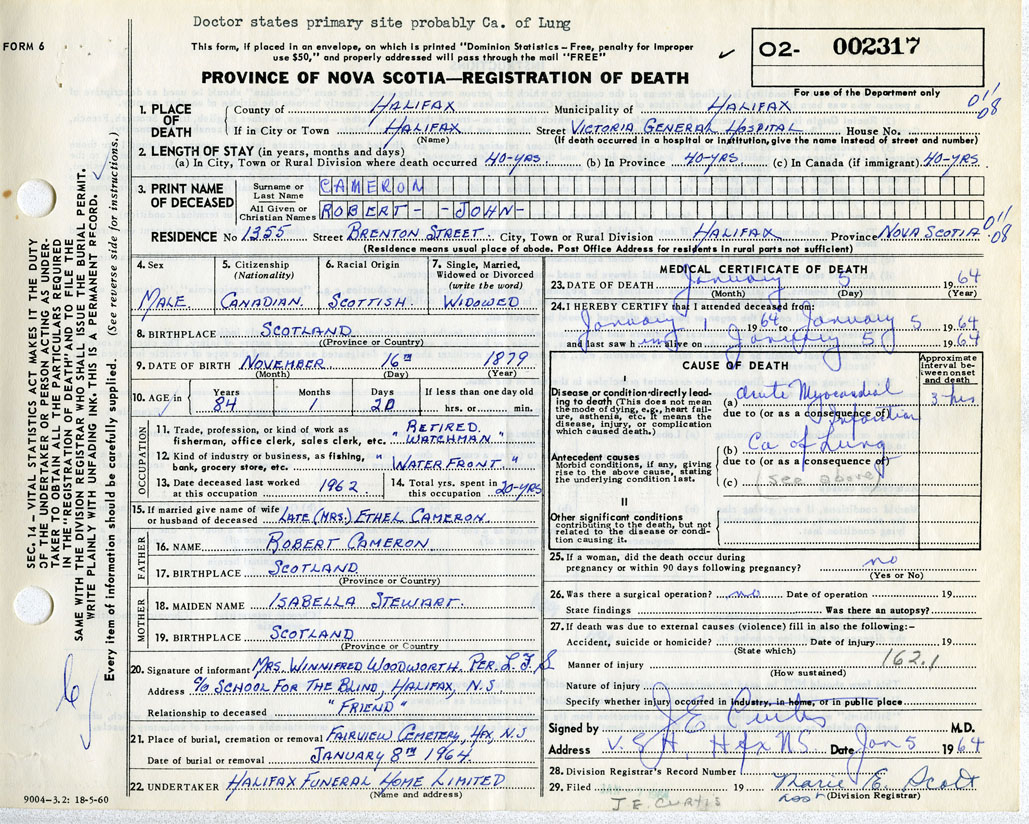 Doctor states primary site probably Ca. of Lung
FORM 6
This form, if placed in an envelope, on which is printed "Dominion Statistics – Free, penalty for improper
use $50," and properly addressed will pass through the mail "FREE"
PROVINCE OF NOVA SCOTIA—REGISTRATION OF DEATH
02- 002317
For use of the Department only
1. PLACE OF DEATH
County of HALIFAX Municipality of HALIFAX
If in City or Town HALIFAX Street VICTORIA GENERAL HOSPITAL House No.
(Name) (If death occurred in a hospital or institution, give the name instead of street and number)
2. LENGTH OF STAY (in years, months and days)
(a) In City, Town or Rural Division where death occurred 40-YRS (b) In Province 40-YRS (c) In Canada (if immigrant) 40-YRS
3. PRINT NAME OF DECEASED
Surname or Last Name CAMERON
All Given or Christian Names ROBERT - - JOHN -
RESIDENCE No 1355 Street BRENTON STREET City, Town or Rural Division HALIFAX Province NOVA SCOTIA
(Residence means usual place of abode. Post Office Address for residents in rural parts not sufficient)
011 08
011 08
4. Sex
MALE
5. Citizenship (Nationality)
CANADIAN.
6. Racial Origin
SCOTTISH.
7. Single, Married, Widowed or Divorced (write the word)
WIDOWED
8. BIRTHPLACE SCOTLAND
(Province or Country)
9. DATE OF BIRTH NOVEMBER 16th 1879
(Month) (Day) (Year)
10. AGE in Years 84 Months 1 Days 20 If less than one day old hrs. or min.
OCCUPATION
11. Trade, profession, or kind of work as fisherman, office clerk, sales clerk, etc. " RETIRED. WATCHMAN "
12. Kind of industry or business, as fishing, bank, grocery store, etc. " WATER FRONT "
13. Date deceased last worked at this occupation 1962.
14. Total yrs. spent in this occupation 20-YRS
15. If married give name of wife or husband of deceased LATE (MRS.) ETHEL CAMERON.
FATHER
16. NAME ROBERT CAMERON.
17. BIRTHPLACE SCOTLAND
(Province or Country)
MOTHER
18. MAIDEN NAME ISABELLA STEWART.
19. BIRTHPLACE SCOTLAND
(Province or Country)
20. Signature of informant MRS. WINNIFRED WOODWORTH. PER. L.F.S
Address c/o SCHOOL FOR THE BLIND, HALIFAX, N.S
Relationship to deceased "FRIEND"
21. Place of burial, cremation or removal FAIRVIEW CEMETERY, HFX, N.S
Date of burial or removal JANUARY 8TH 1964.
22. UNDERTAKER HALIFAX FUNERAL HOME LIMITED
(Name and address)
MEDICAL CERTIFICATE OF DEATH
23. DATE OF DEATH January 5 1964
(Month) (Day) (Year)
24. I HEREBY CERTIFY that I attended deceased from
January 1 1964 to January 5 1964
and last saw him alive on January 5 1964
CAUSE OF DEATH
Approximate Interval between onset and death
I
Disease or condition directly leading to death (This does not mean the mode of dying, e.g., heart failure, asthenia, etc. It means the disease, injury, or complication which caused death.)
(a) Acute Myocardial Infarction 3 hrs
due to (or as a consequence of)
Antecedent causes
Morbid conditions, if any, giving rise to the above cause, stating the underlying condition last.
(b) Ca of Lung
due to (or as a consequence of)
(c) (see above)
II
Other significant conditions
contributing to the death, but not related to the disease or condition causing it.
25. If a woman, did the death occur during pregnancy or within 90 days following pregnancy? no
(Yes or No)
26. Was there a surgical operation? no Date of operation 19
State findings Was there an autopsy?
27. If death was due to external causes (violence) fill in also the following:–
Accident, suicide or homicide? Date of injury 19
(State which)
Manner of injury 162.1
(How sustained)
Nature of injury
Specify whether injury occurred in industry, in home, or in public place
Signed by J E Curtis M.D.
Address V.G.H. Hfx N.S. Date Jan 5 1964
28. Division Registrar's Record Number
29. Filed 19 Marie E. Scott
(Division Registrar)
J.E. CURTIS
SEC. 14 – VITAL STATISTICS ACT MAKES IT THE DUTY
OF THE UNDERTAKER OR PERSON ACTING AS UNDER-
TAKER TO OBTAIN ALL THE PARTICULARS REQUIRED
IN THE "REGISTRATION OF DEATH" AND TO FILE THE
SAME WITH THE DIVISION REGISTRAR WHO SHALL ISSUE THE BURIAL PERMIT.
WRITE PLAINLY WITH UNFADING INK. THIS IS A PERMANENT RECORD.
Every item of information should be carefully supplied. (See reverse side for instructions.)
9004–3.2: 18-5-60